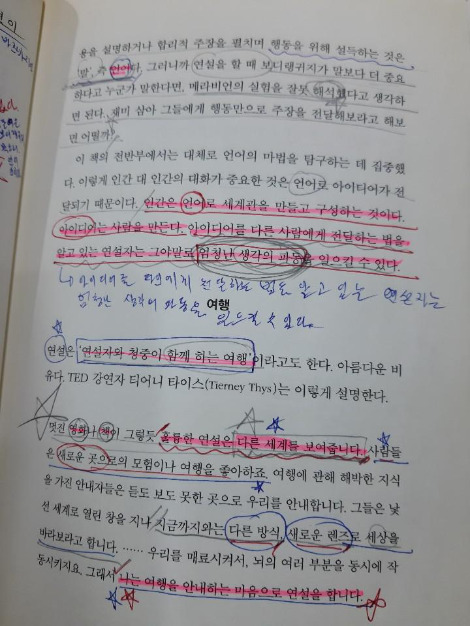 용을 설명하거나 합리적 주장을 펼치며 행동을 위해 설득하는 것은
'말', 즉 언어다. 그러니까 연설을 할 때 보디랭귀지가 말보다 더 중요
하다고 누군가 말한다면, 메라비언의 실험을 잘못 해석했다고 생각하
면 된다. 재미 삼아 그들에게 행동만으로 주장을 전달해보라고 해보
면 어떨까?
이 책의 전반부에서는 대체로 언어의 마법을 탐구하는 데 집중했
다. 이렇게 인간 대 인간의 대화가 중요한 것은 언어로 아이디어가 전
달되기 때문이다. 인간은 언어로 세계관을 만들고 구성하는 것이다.
아이디어는 사람을 만든다. 아이디어를 다른 사람에게 전달하는 법을
알고 있는 연설자는 그야말로 엄청난 생각의 파동을 일으킬 수 있다.
아이디어를 전달하는 법을 알고 있는 연설자는
엄청난 생각의 파동을 일으킬 수 있다.
여행
연설은 '연설자와 청중이 함께 하는 여행'이라고도 한다. 아름다운 비
유다. TED 강연자 티어니 타이스(Tierney Thys)는 이렇게 설명한다.
멋진 영화나 책이 그렇듯 훌륭한 연설은 다른 세계를 보여줍니다. 사람들
은 새로운 곳으로의 모험이나 여행을 좋아하죠. 여행에 관해 해박한 지식
을 가진 안내자들은 듣도 보도 못한 곳으로 우리를 안내합니다. 그들은 낯
선 세계로 열린 창을 지나 지금까지와는 다른 방식, 새로운 렌즈로 세상을
바라보라고 합니다. …… 우리를 매료시켜서, 뇌의 여러 부분을 동시에 작
동시키지요. 그래서 나는 여행을 안내하는 마음으로 연설을 합니다.